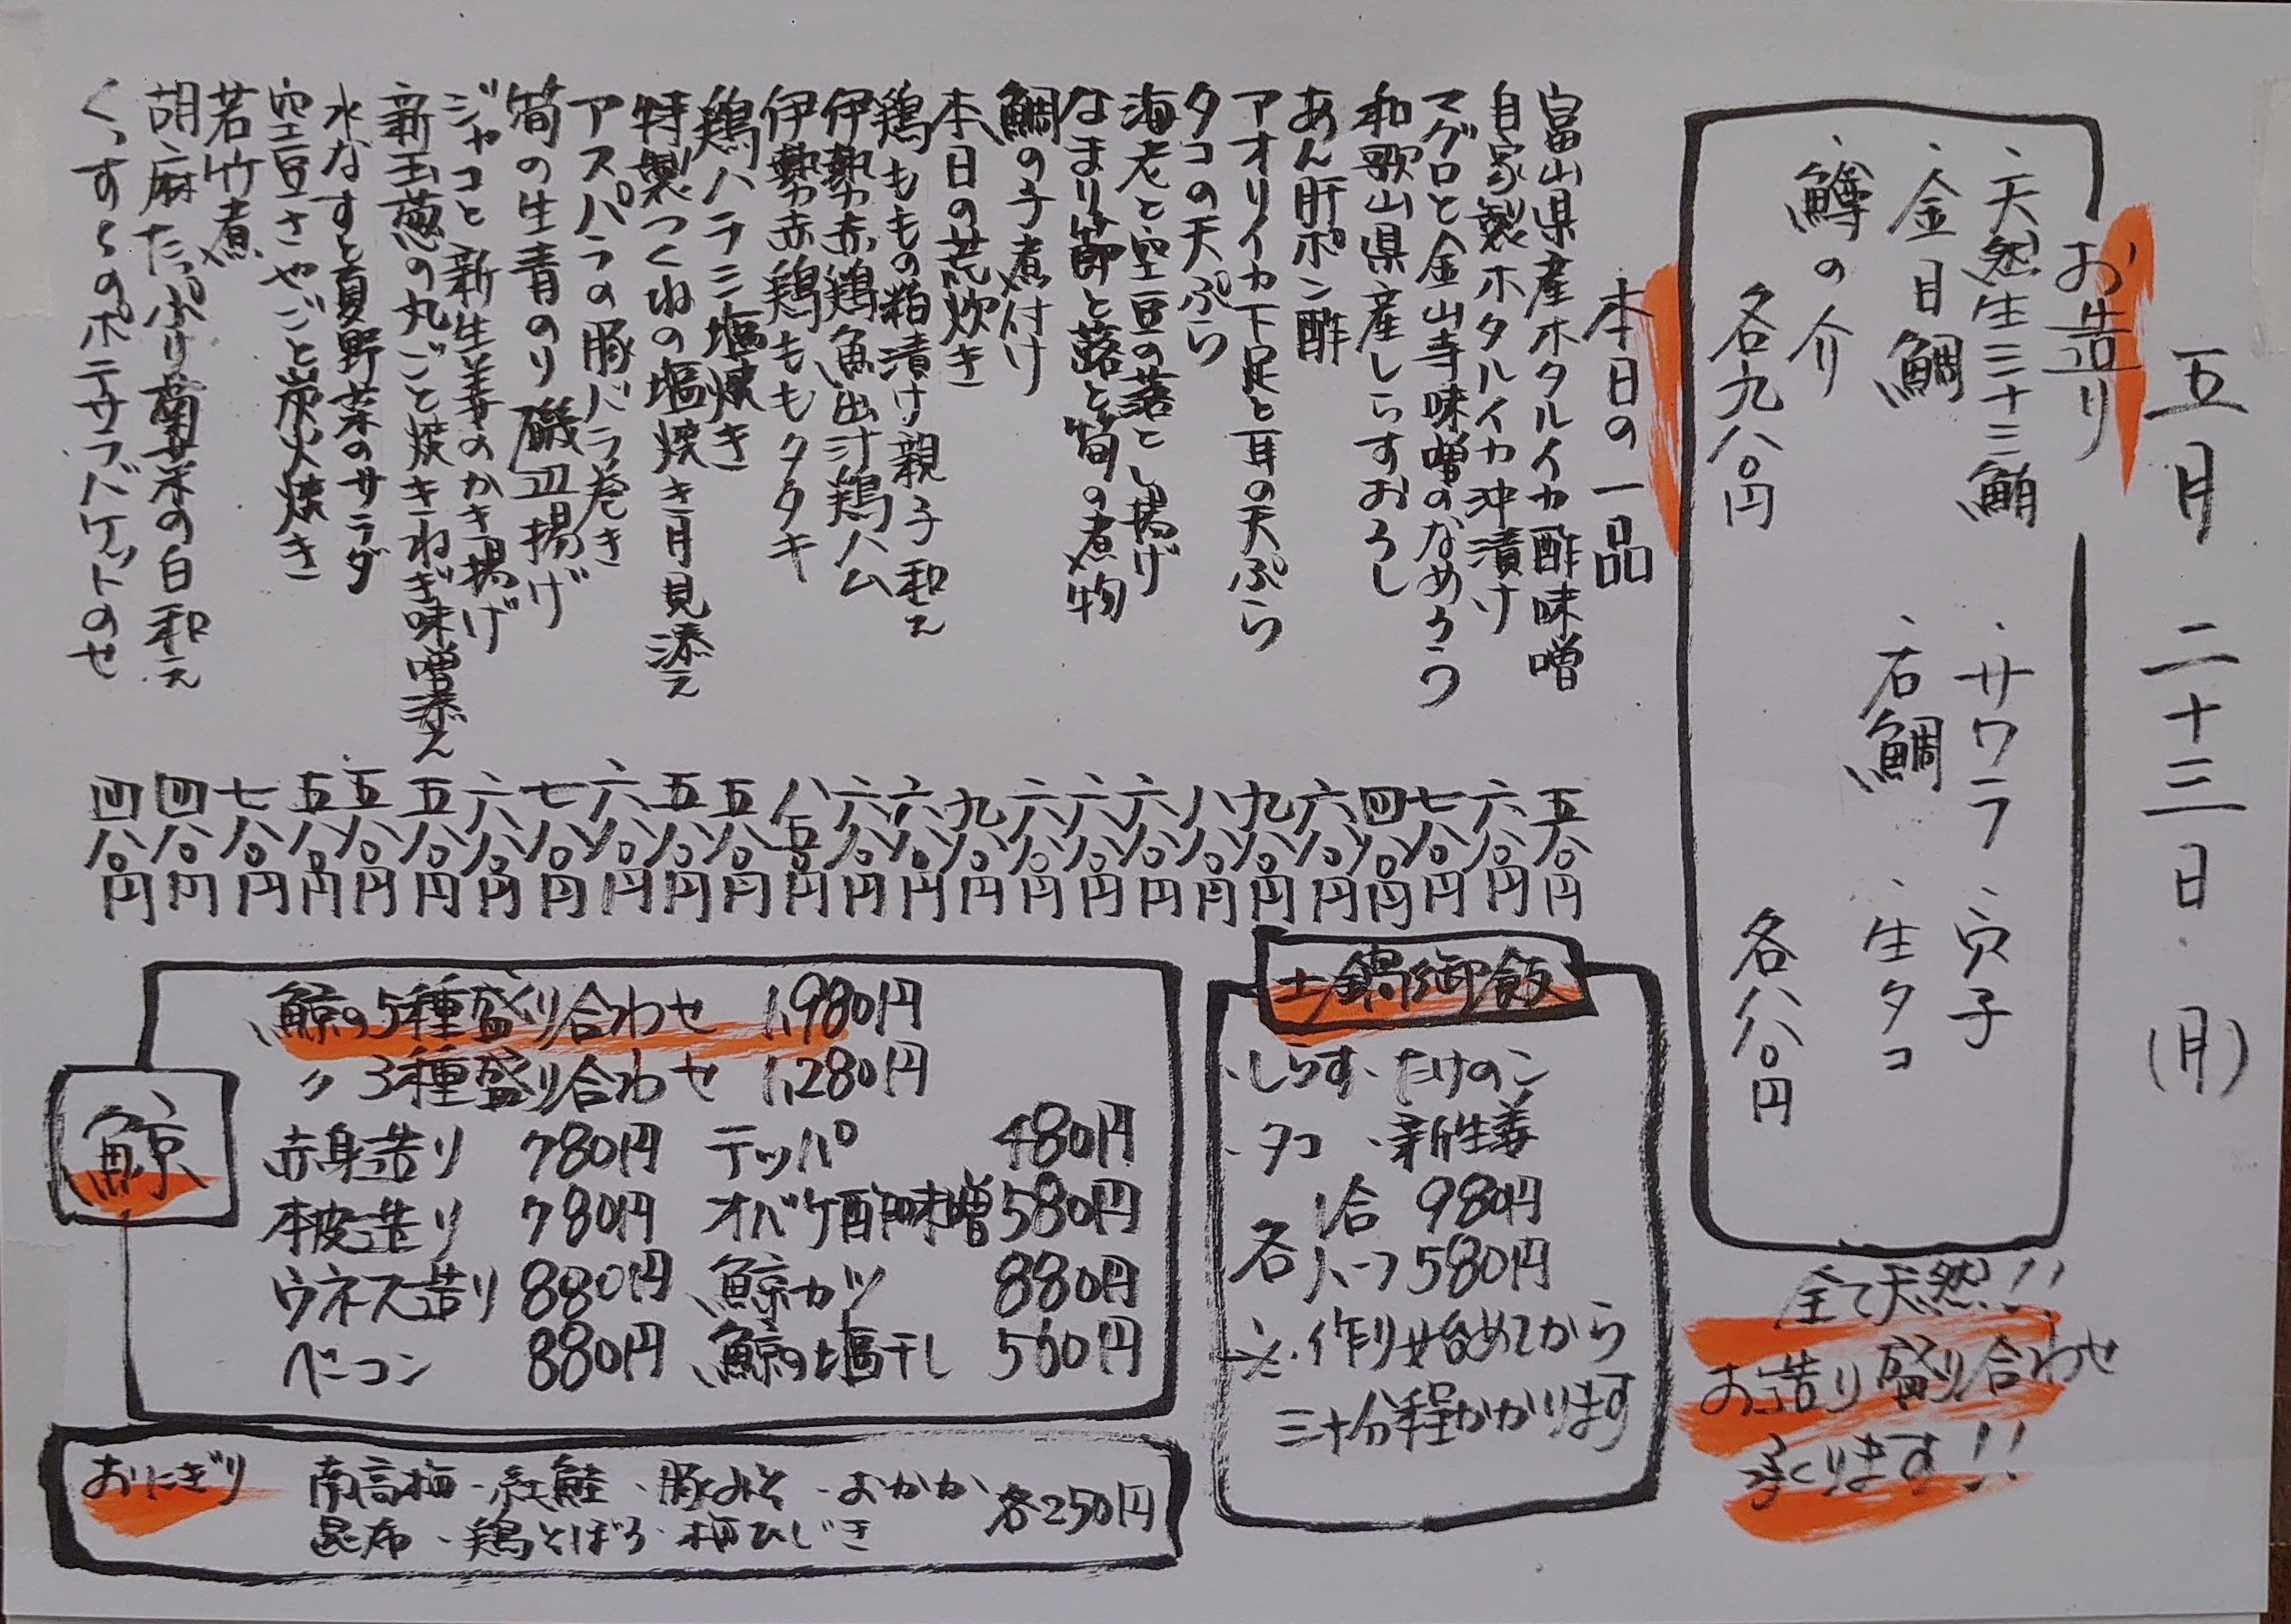 五月二十三日(月)
お造り
・天然生三十三鮪 ・サワラ ・穴子
・金目鯛 ・石鯛 ・生タコ
・鱒の介
各九八〇円 各八八〇円
全て天然!!
お造り盛り合わせ
承ります!!
本日の一品
富山県産ホタルイカ酢味噌 五八〇円
自家製ホタルイカ沖漬け 六八〇円
マグロと金山寺味噌のなめろう 七八〇円
和歌山県産しらすおろし 四八〇円
あん肝ポン酢 六八〇円
アオリイカ下足と耳の天ぷら 九八〇円
タコの天ぷら 八八〇円
海老と空豆の落とし揚げ 六八〇円
なまり節と蕗と筍の煮物 六八〇円
鯛の子煮付け 六八〇円
本日の荒炊き 九八〇円
鶏ももの粕漬け親子和え 六八〇円
伊勢赤鶏魚出汁鶏ハム 六八〇円
伊勢赤鶏ももタタキ 八五〇円
鶏ハラミ塩焼き 五八〇円
特製つくねの塩焼き月見添え 五八〇円
アスパラの豚バラ巻き 六八〇円
筍の生青のり磯辺揚げ 七八〇円
ジャコと新生姜のかき揚げ 六八〇円
新玉葱の丸ごと焼きねぎ味噌添え 五八〇円
水なすと夏野菜のサラダ 五八〇円
空豆さやごと炭火焼き 五八〇円
若竹煮 七八〇円
胡麻たっぷり菊菜の白和え 四八〇円
くんすらのポテサラバケットのせ 四八〇円
土鍋御飯
・しらす・たけのこ
・タコ ・新生姜
各 1合 980円
ハーフ 580円
※作り始めてから
三十分程かかります
鯨
鯨の5種盛り合わせ 1,980円
〃3種盛り合わせ 1,280円
赤身造り 780円 テッパ 480円
本皮造り 780円 オバケ酢味噌 580円
ウネス造り 880円 鯨カツ 880円
ベーコン 880円 鯨の塩干し 550円
おにぎり
南高梅・紅鮭・豚みそ・おかか
昆布・鶏そぼろ・梅ひじき
各250円